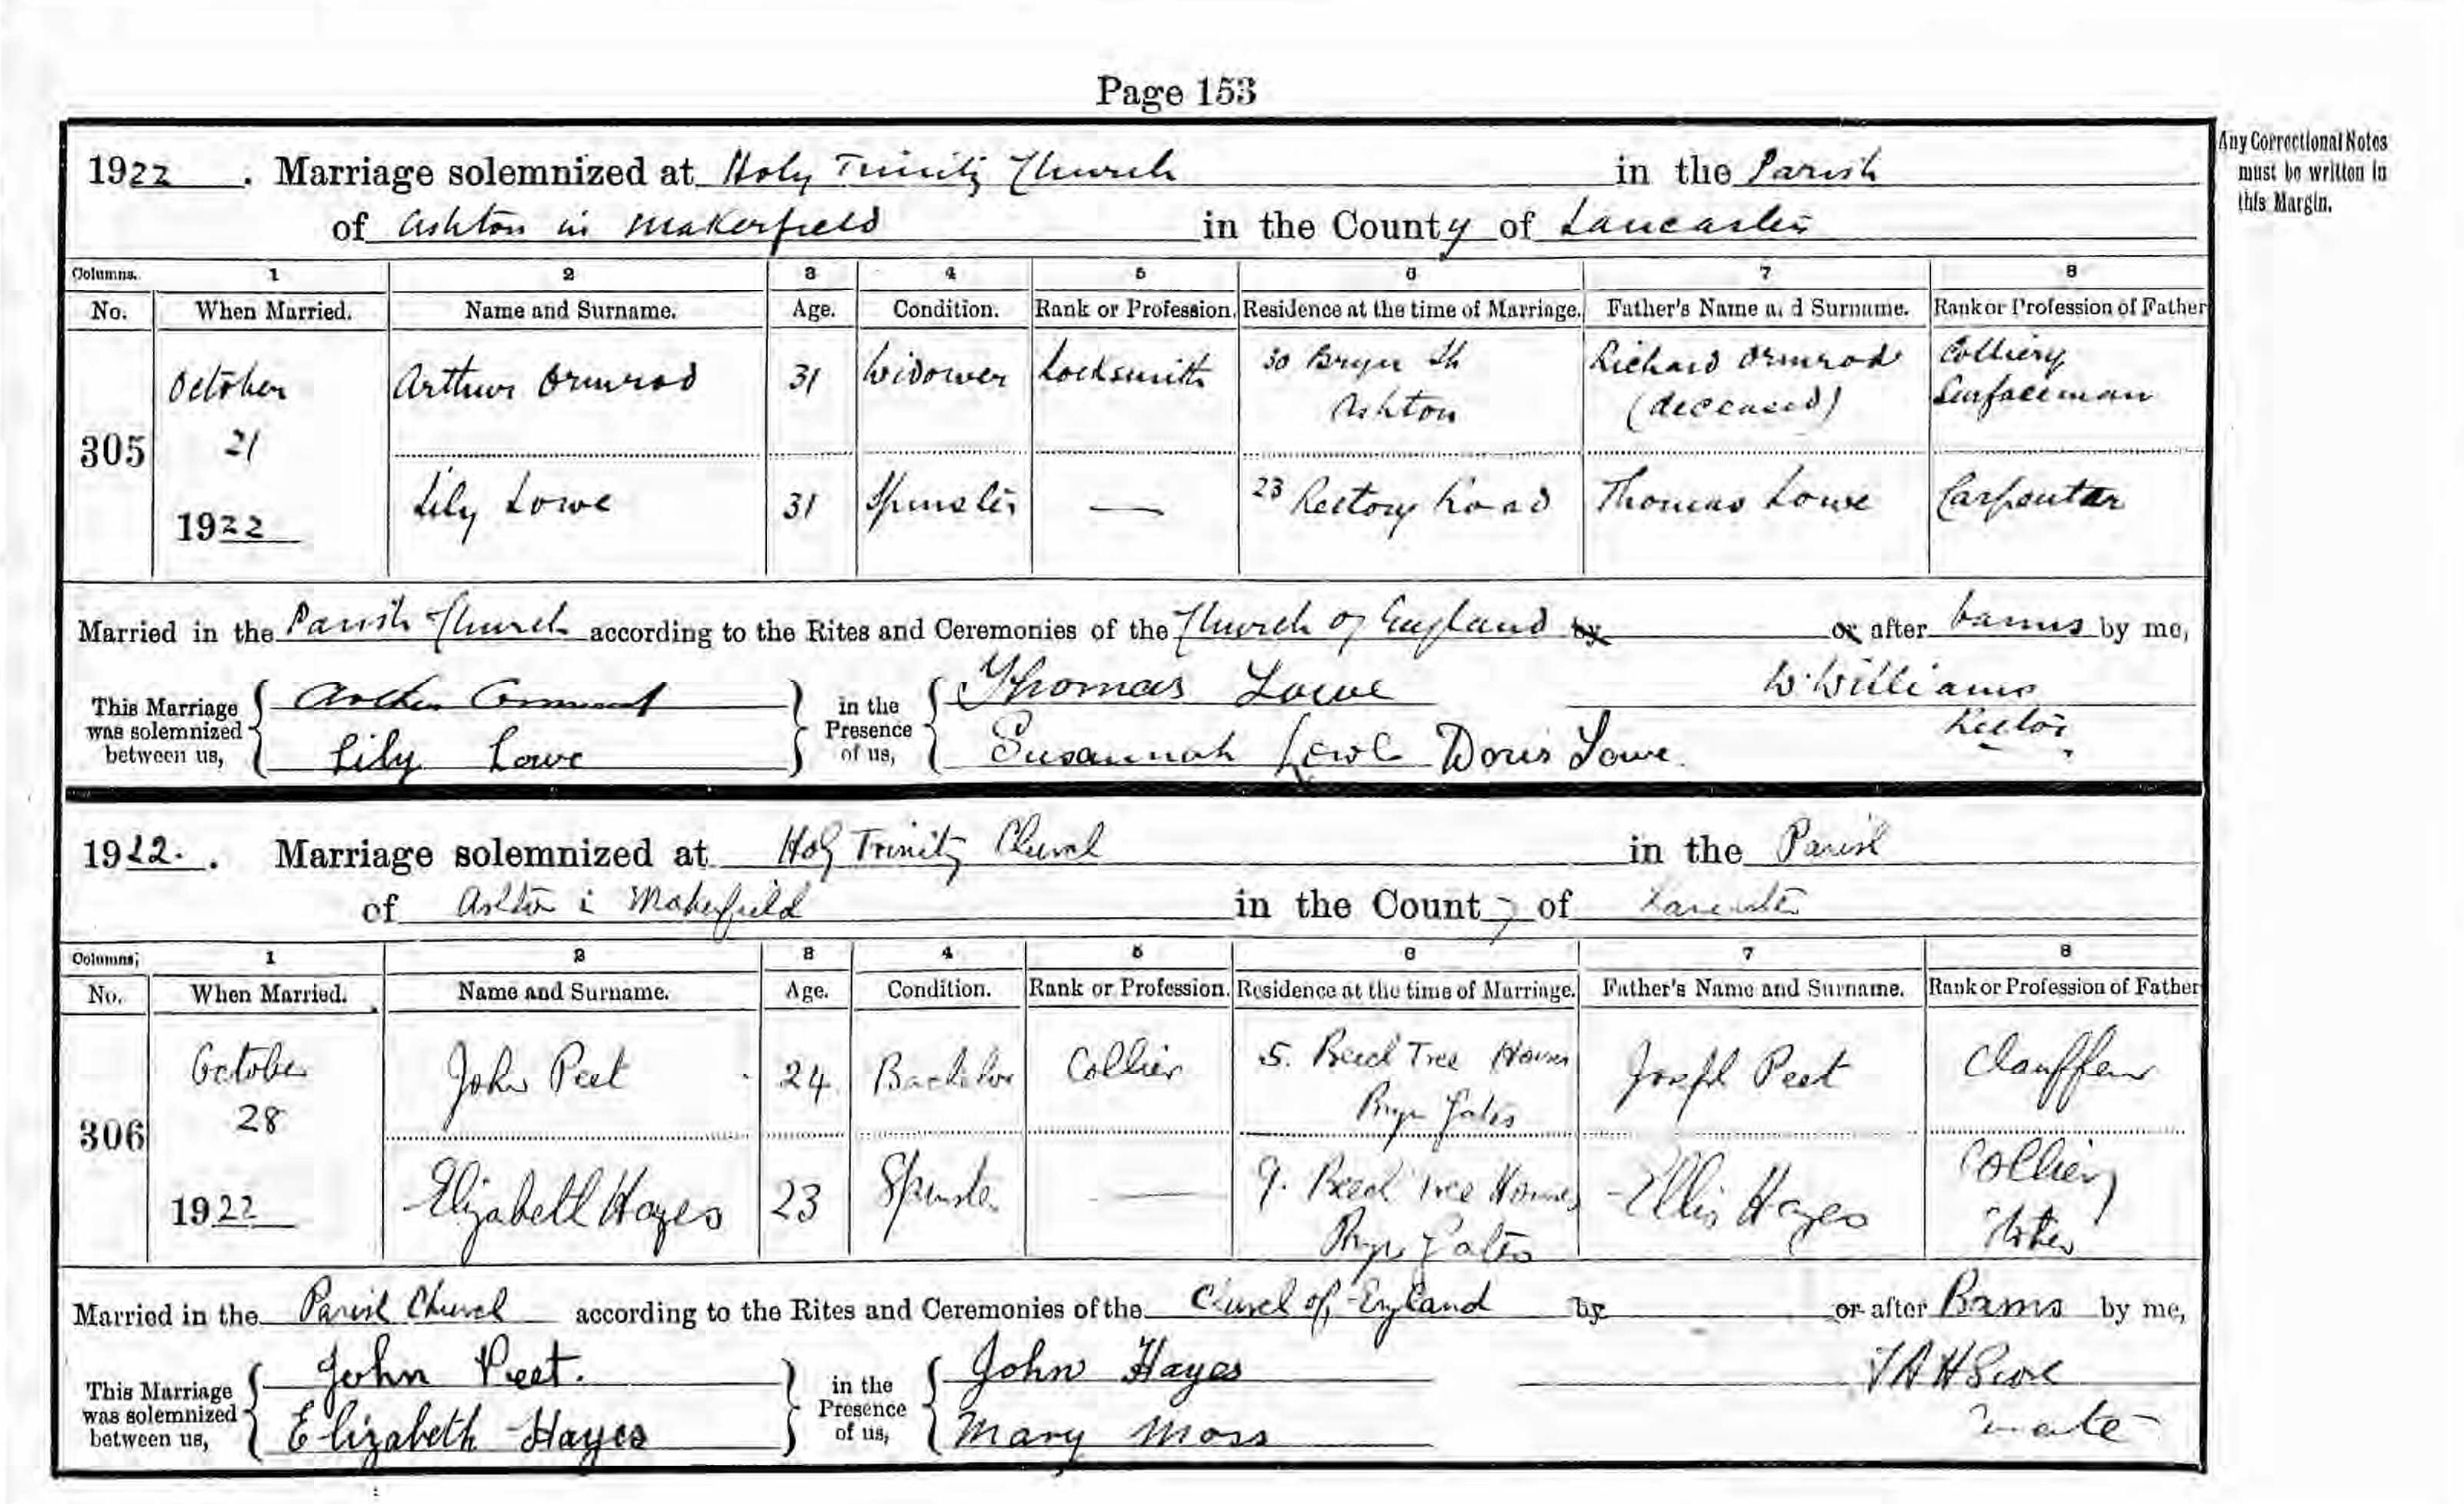 Page 153
Any Correctional Notes
must be written in
this Margin.
1922. Marriage solemnized at Holy Trinity Church in the Parish
of Ashton in Makerfield in the County of Lancaster
Columns. 1 2 3 4 5 6 7 8
No. When Married. Name and Surname. Age. Condition. Rank or Profession. Residence at the time of Marriage. Father's Name and Surname. Rank or Profession of Father
305 October 21 1922 Arthur Ormrod 31 Widower Locksmith 30 Bryn St Ashton Richard Ormrod (deceased) Colliery Surfaceman
Lily Lowe 31 Spinster — 23 Rectory Road Thomas Lowe Carpenter
Married in the Parish Church according to the Rites and Ceremonies of the Church of England by or after banns by me,
This Marriage was solemnized between us, Arthur in the Presence of us, Thomas Lowe W. Williams
Lily Lowe Susannah Lowe Doris Lowe Rector
1922. Marriage solemnized at Holy Trinity Church in the Parish
of Ashton i Makerfield in the County of Lancaster
Columns; 1 2 3 4 5 6 7 8
No. When Married. Name and Surname. Age. Condition. Rank or Profession. Residence at the time of Marriage. Father's Name and Surname. Rank or Profession of Father
306 October 28 1922 John Peet 24 Bachelor Collier 5. Beech Tree Houses Bryn Gates Joseph Peet Chauffeur
Elizabeth Hayes 23 Spinster — 9. Beech Tree Houses Bryn Gates Ellis Hayes Colliery
Married in the Parish Church according to the Rites and Ceremonies of the Church of England by or after Banns by me,
This Marriage was solemnized between us, John Peet. in the Presence of us, John Hayes
Elizabeth Hayes Mary Moss